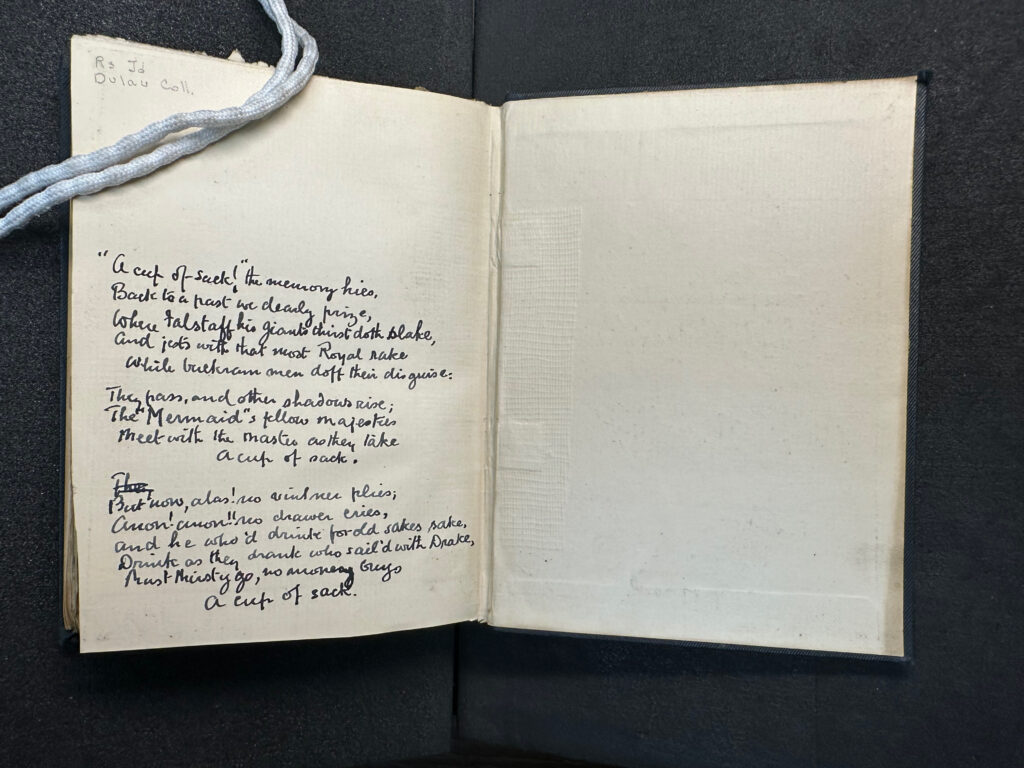 Rs Id
Dulau Coll.
"A cup of sack!" the memory hies,
Back to a past we dearly prize,
Where Falstaff his giants thirst doth slake,
And jests with that most Royal rake
While buckram men doff their disguise:
They pass, and other shadows rise;
The "Mermaid"s fellow majesties
Meet with the master as they take
A cup of sack.
The
But now, alas! no vintner plies;
Anon! anon!! no drawer cries,
And he who'd drink for old sakes sake,
Drink as they drank who sail'd with Drake,
Must thirsty go, no money buys
A cup of sack.